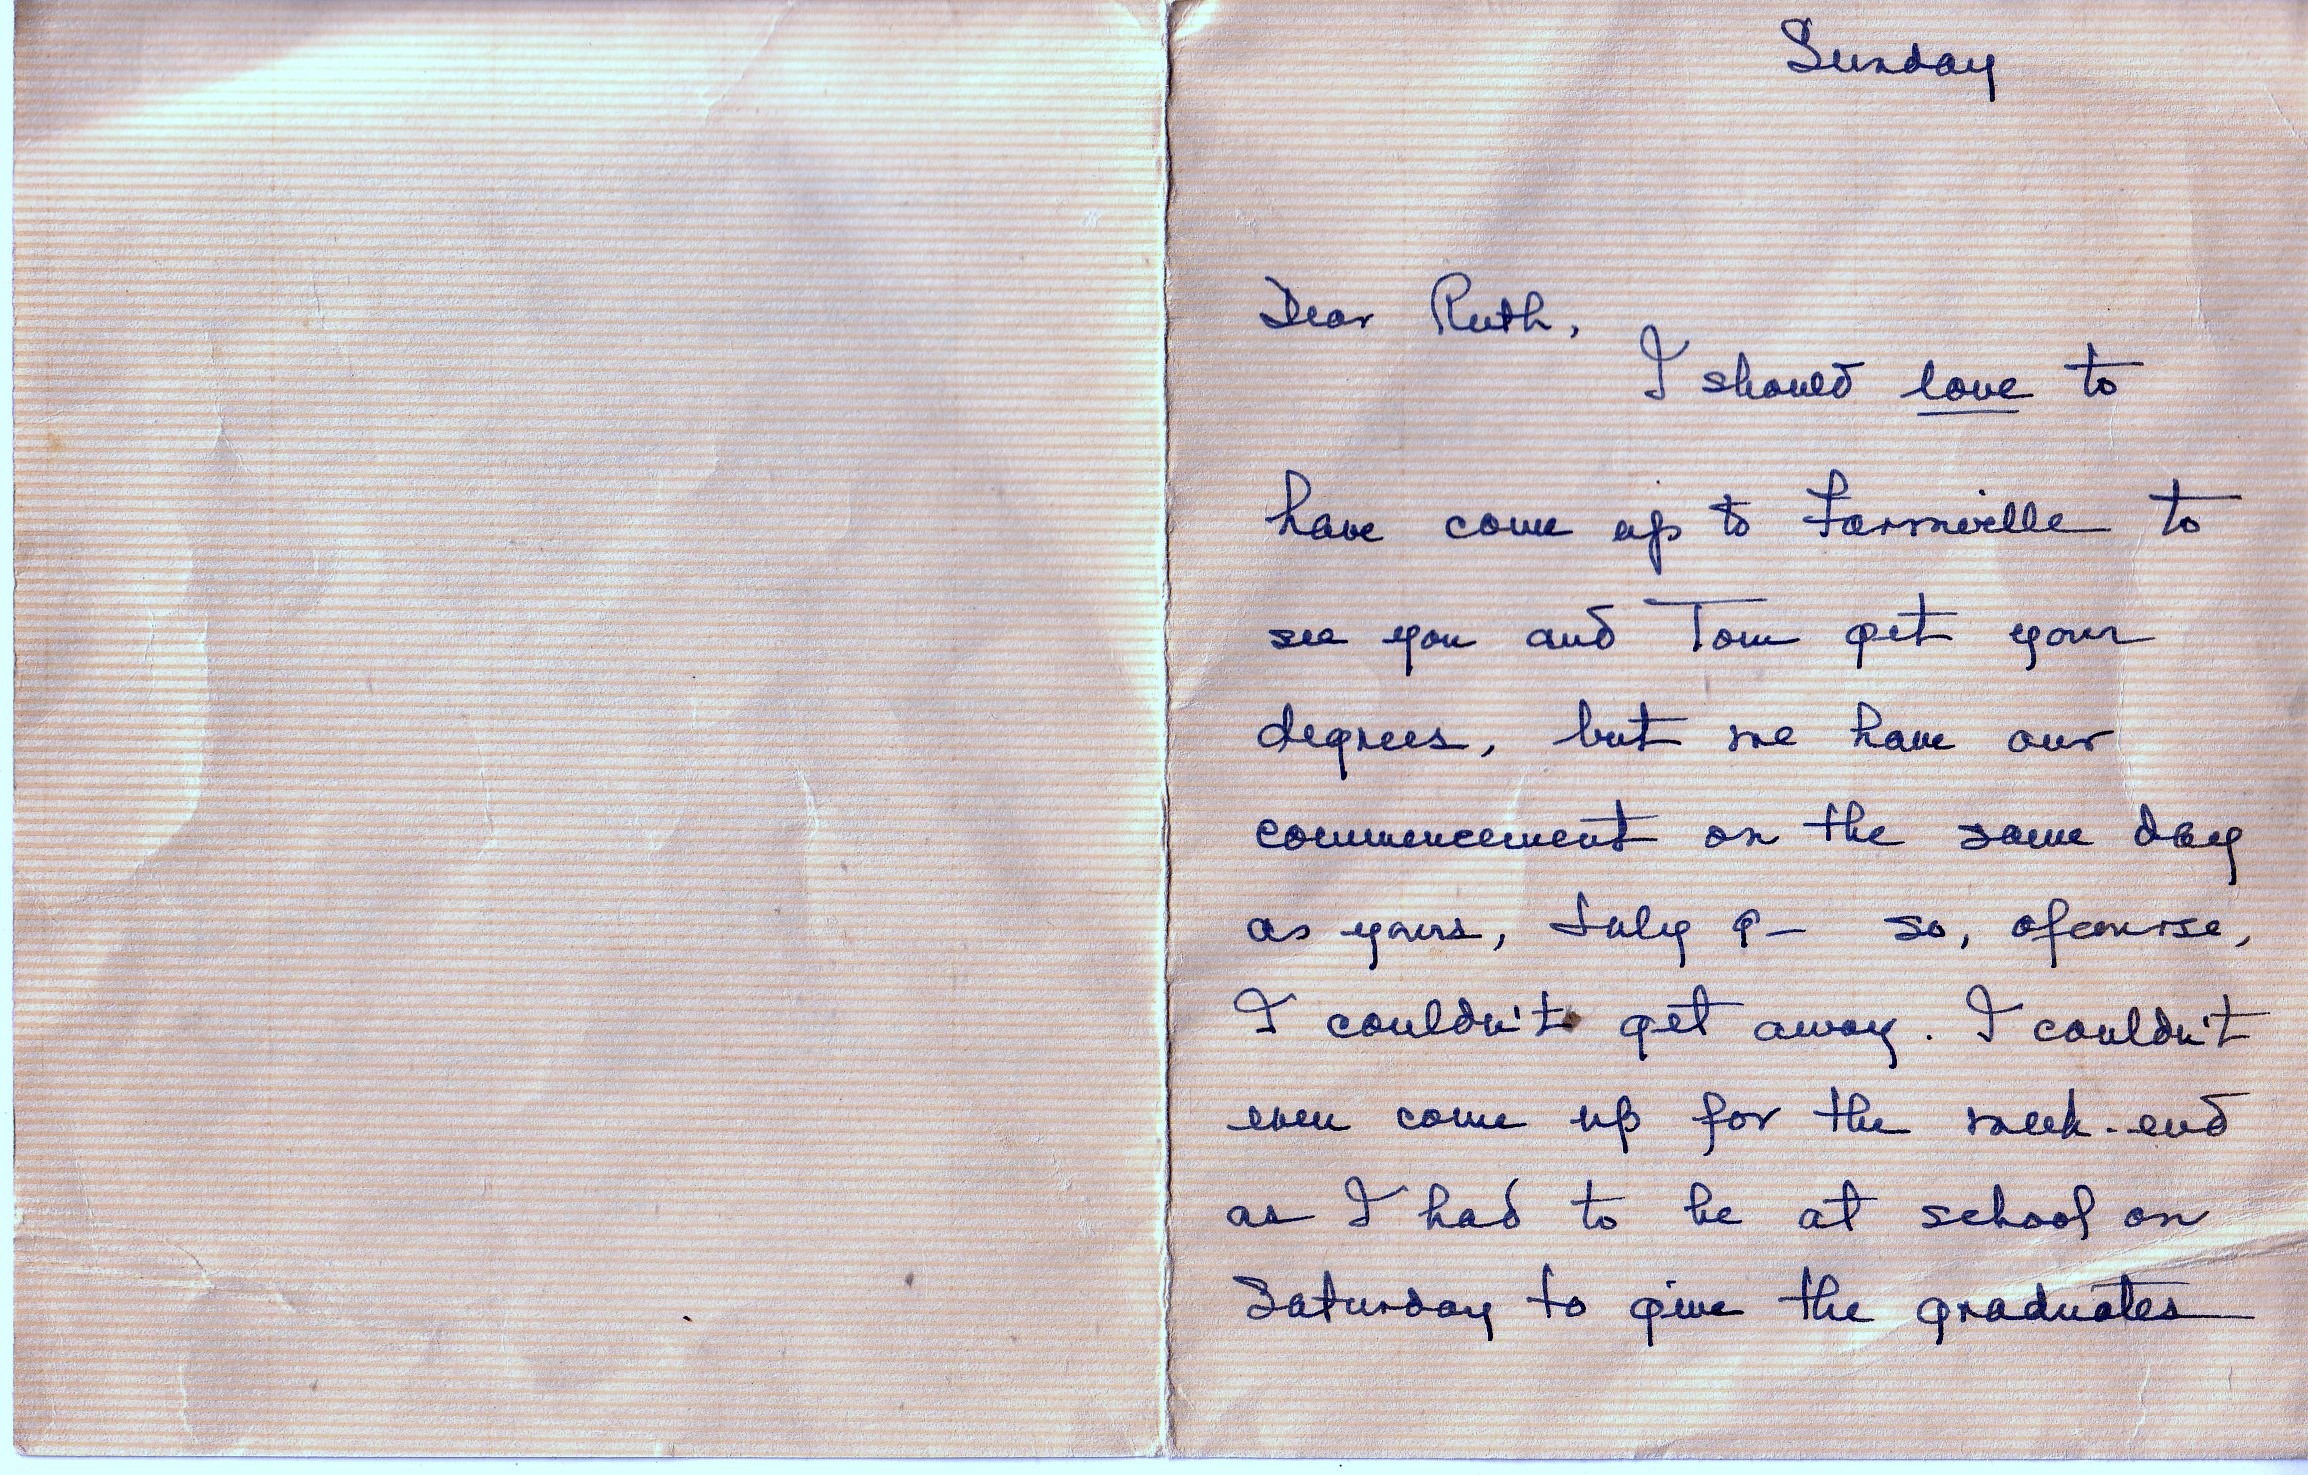 Sunday
Dear Ruth,
I should love to
have come up to Farmville to
see you and Tom get your
degrees, but we have our
commencement on the same day
as yours, July 9 - so, ofcourse,
I couldn't get away. I couldn't
even come up for the week-end
as I had to be at school on
Saturday to give the graduates